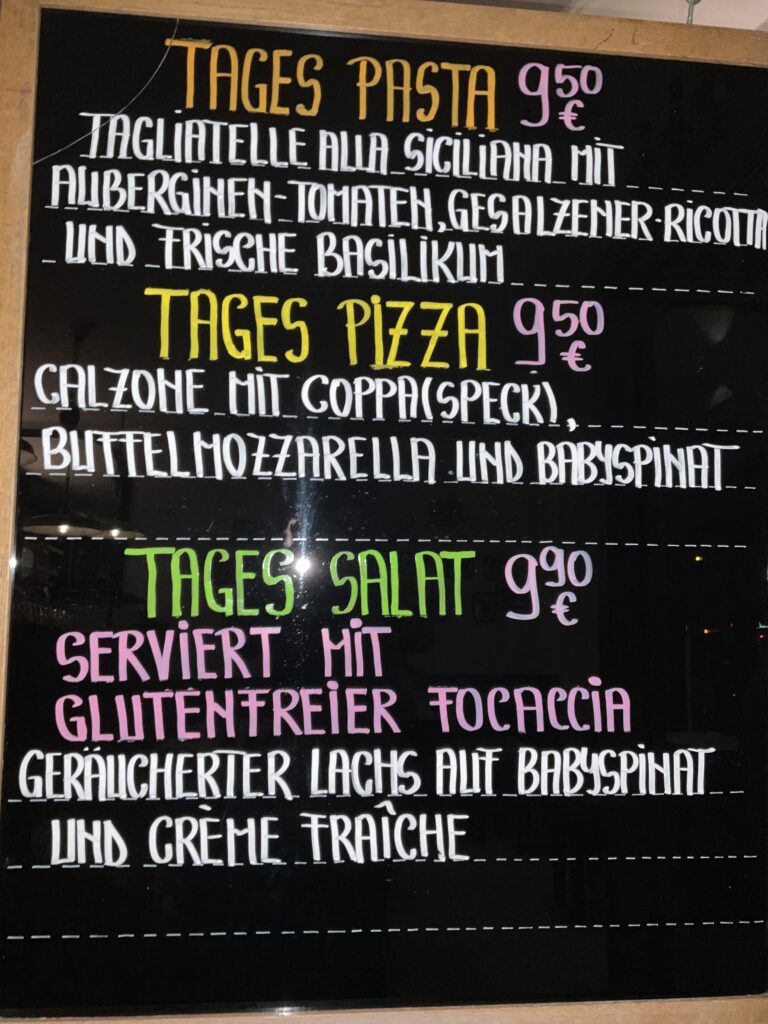 TAGES PASTA 9 50 €
TAGLIATELLE ALLA SICILIANA MIT
AUBERGINEN-TOMATEN, GESALZENER-RICOTTA
UND FRISCHE BASILIKUM
TAGES PIZZA 9 50 €
CALZONE MIT COPPA(SPECK),
BUFFELMOZZARELLA UND BABYSPINAT
TAGES SALAT 9 90 €
SERVIERT MIT
GLUTENFREIER FOCACCIA
GERÄUCHERTER LACHS AUF BABYSPINAT
UND CRÈME FRAÎCHE